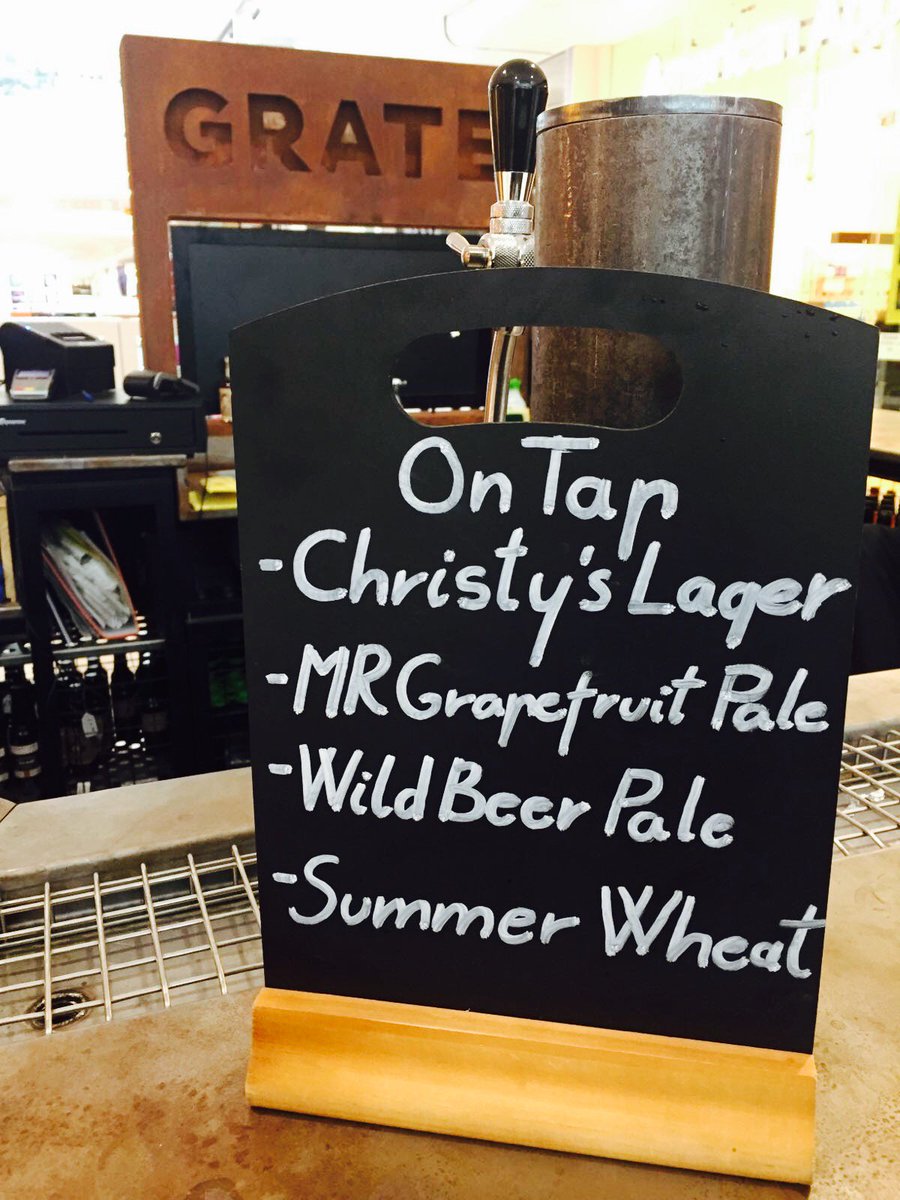 GRATE
On Tap
- Christy's Lager
- MR Grapefruit Pale
- Wild Beer Pale
- Summer Wheat